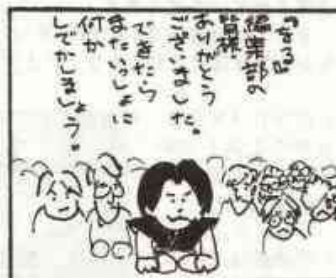 編集部の
皆様、
ありがとう
ございました。
できたら
またいっしょに
何か
しでかしましょう。